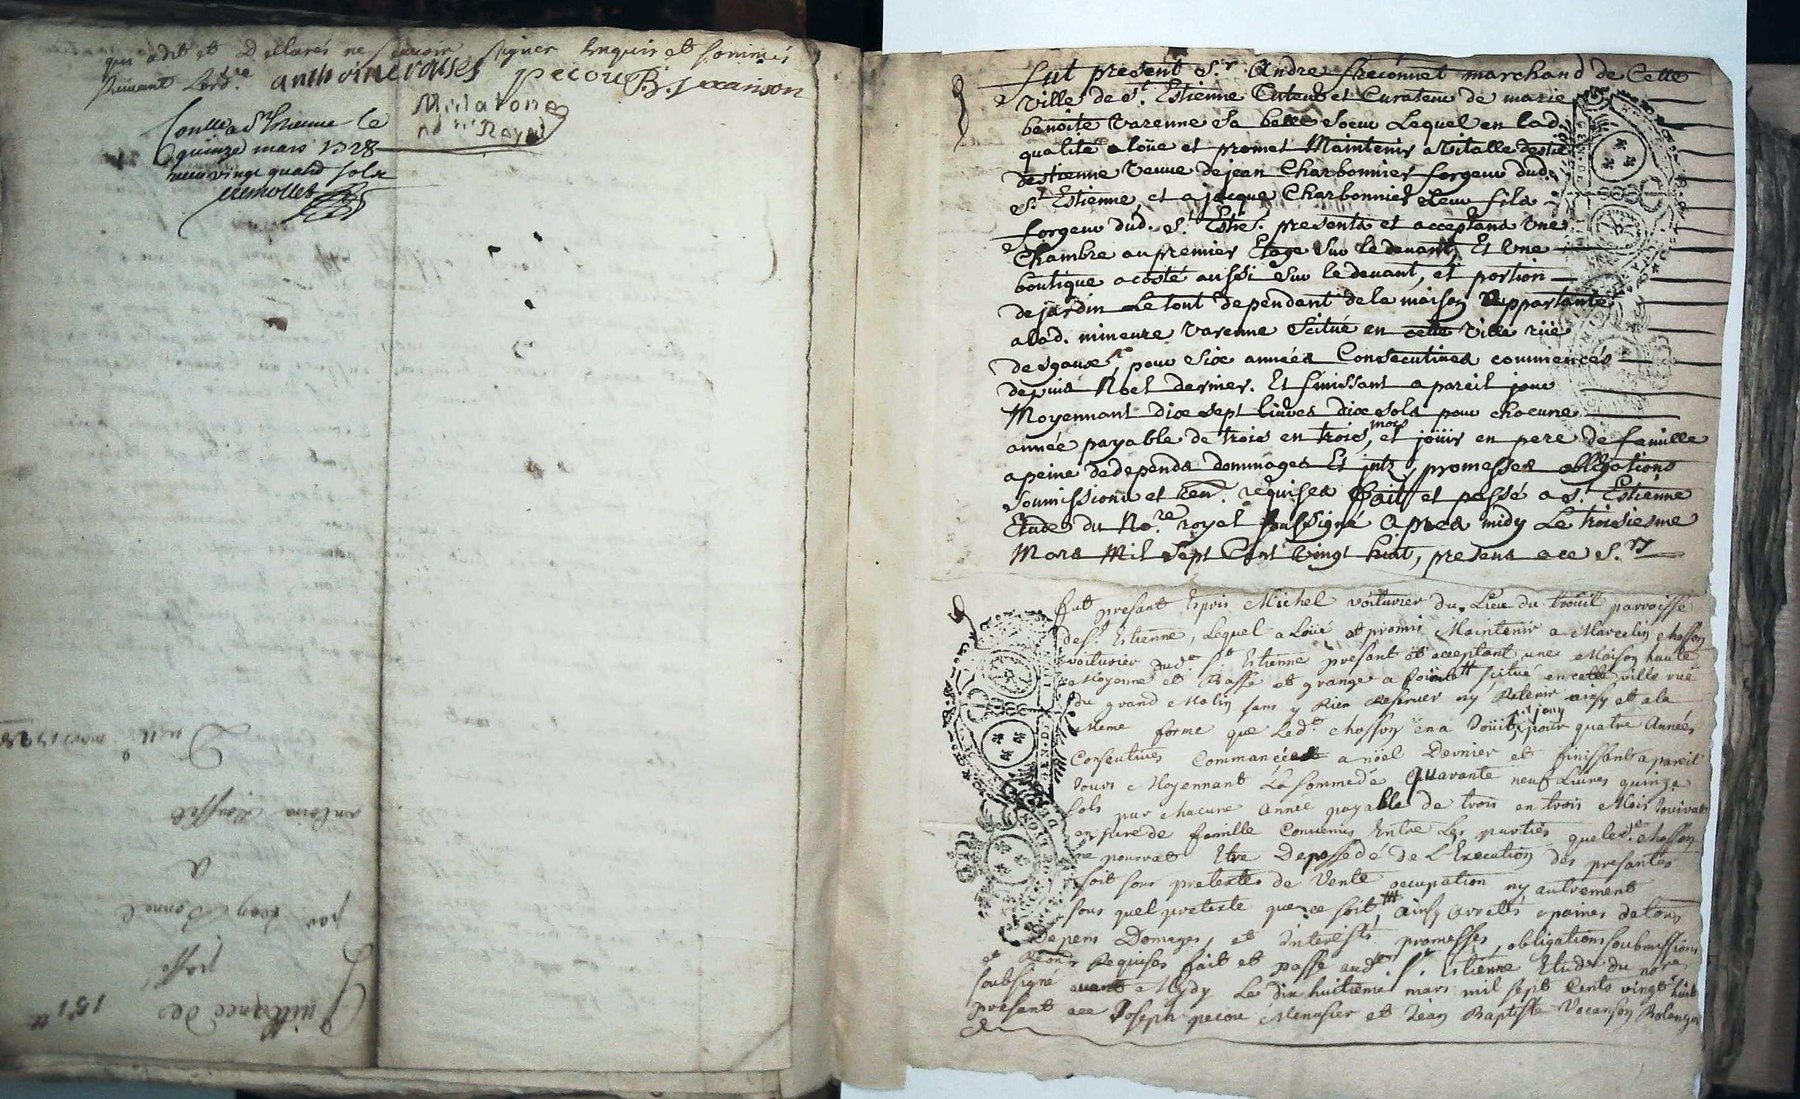 qui a dit et Déclarés ne scavoir signer Enquis et sommés
suivant Lord.re anthoine varises pecou B. J. Vocanson
no.re Royal
Conllé a St Etienne le
quinze mars 1728
vingt quatre sols
Quittance de
151 tt
passé
par
a
antoine
Du 11 mars 1728
fut present S.r Andre freconnet marchand de Cette
ville de S.t Estienne Tuteur et Curateur de marie
benoite Varenne Sa belle Soeur Lequel en lad.
qualité a loüe et promet Maintenir a
destienne Veuve de jean Charbonnier forgeur dud.
S.t Estienne, et a jacque Charbonnier leur fils
forgeur dud. S.t Estie. presents et acceptans Une
Chambre au premier Etage Sur le devant, Et Une
boutique a costé aussi Sur le devant, et portion
de jardin Le tout dependant de la maison appartante
a lad. mineure Varenne Scitué en cette Ville rüe
pour Six années Consecutives commencés
depuis Noel dernier. Et finissant a pareil jour
Moyennant dix sept livres dix sols pour chacune
année payable de trois en trois mois, et joüir en pere de famille
a peine de depends dommages Et intz, promesses obligations
Soumissions et ren. requises Fait et passé a S.t Estienne
Etude du No.re royal soussigné apres midy Le troisiesme
Mars Mil Sept Cent Vingt huit, presens a ce S.rs
fut presant Espris Michel voiturier du Lieu du treüil parroisse
de S.t Estienne, Lequel a Loüé et promis Maintenir a Marcelin chosson
voiturier dud.t S.t Estienne presant et acceptant une Maison haute
Moyenne et Basse et grange a scitué en cette ville rüe
du grand Molin sans y Rien Reserver ny Retenir ainsy et a la
Meme forme que Led.t chosson en a Jouit pour quatre Années
Consecutives Commancées a nöel Dernier et finissant a pareil
Jours Moyennant La somme de Quarante neuf Livres quinze
Sols par chacune Annee payable de trois en trois Mois
en pere de famille Convenus Entre Les parties que led.t chosson
ne pourrat Etre Depossedé de L'Execution des presantes
soit sous pretexte de Vente occupation ny autrement
sous quel pretexte que ce soit, ainsy Arrettés a paines de tous
Depens Domages, et interests, promesses, obligations soubmissions
et Renon. Requises fait et passé aud.t S.t Estienne Etude du nore
soubsigné avant Mydy Le dix huitieme mars mil sept cents vingt huit
presant ace Joseph pecou Menusier et Jean Baptiste Vocanson Bolanger